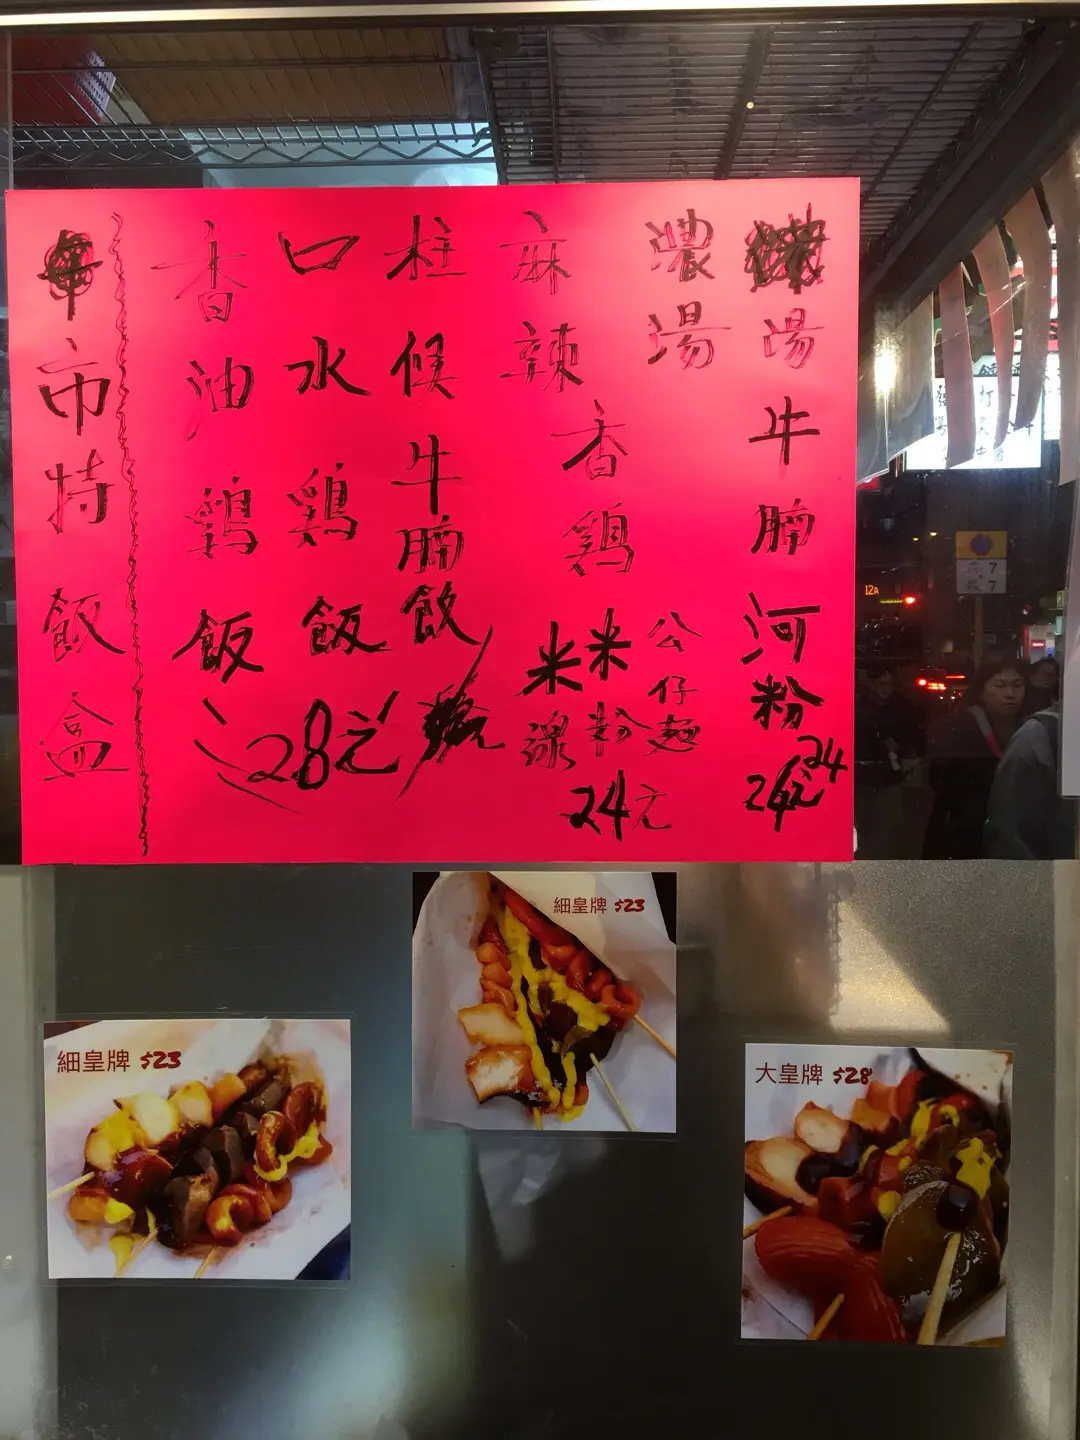 湯牛腩河粉
24元24
濃湯
麻辣
香鷄
公仔麵
米粉
米線
24元
柱候牛腩飲
口水鷄飯
香油鷄飯
28元
市特飯盒
細皇牌 $23
細皇牌 $23
大皇牌 $28
12A